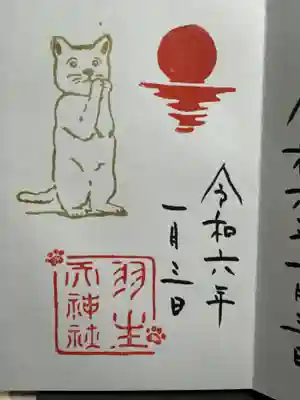 令和六年
一月三日
羽生
天神社